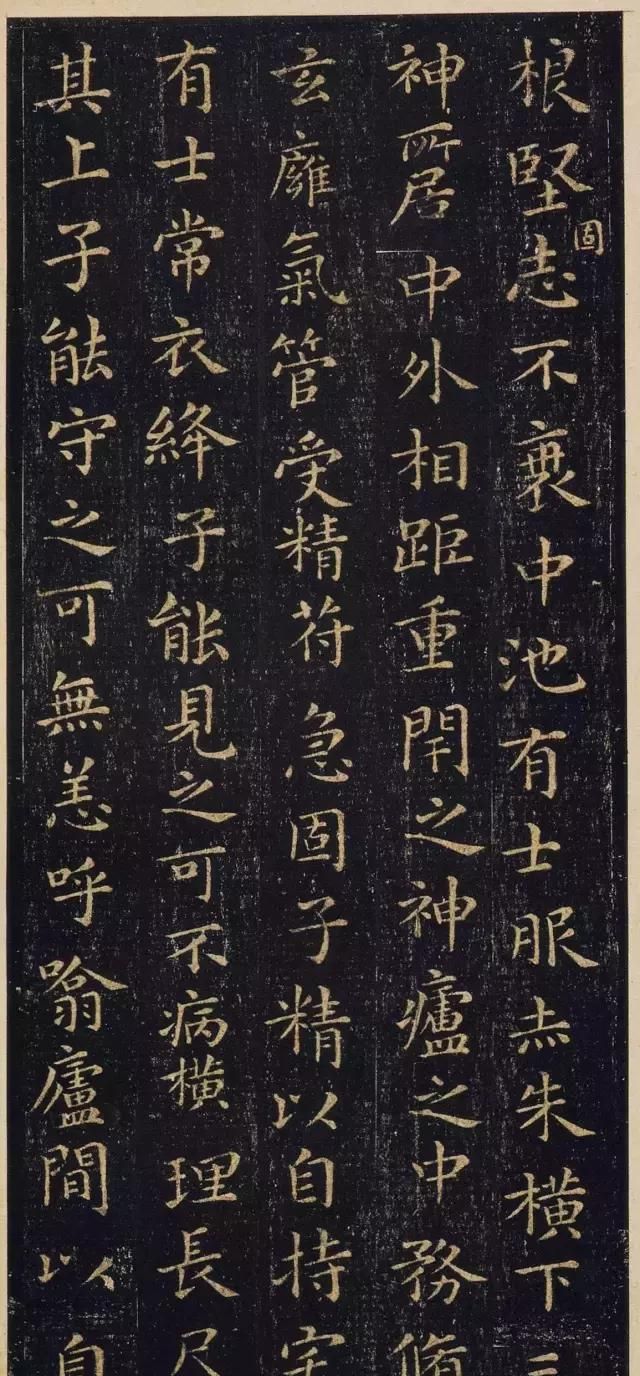 根堅志不衰中池有士服赤朱橫下三
固
神所居中外相距重閇之神廬之中務脩
玄癰氣管受精符急固子精以自持宅
有士常衣絳子能見之可不病橫理長尺
其上子能守之可無恙呼噏廬間以自